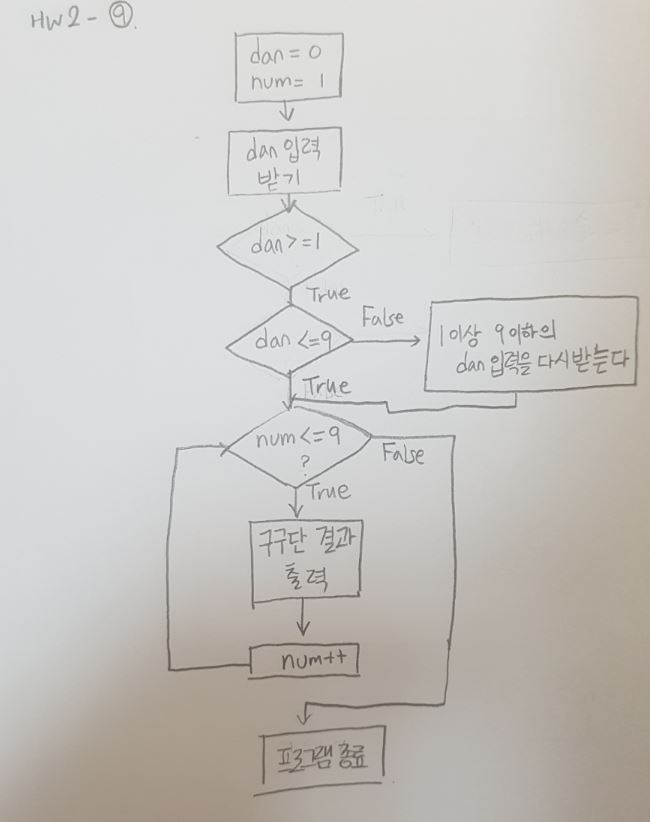 HW2 - ⑨.
dan = 0
num = 1
dan 입력
받기
dan >= 1
True
dan <= 9
False
1이상 9이하의
dan 입력을 다시 받는다
True
num <= 9
?
False
True
구구단 결과
출력
num++
프로그램 종료